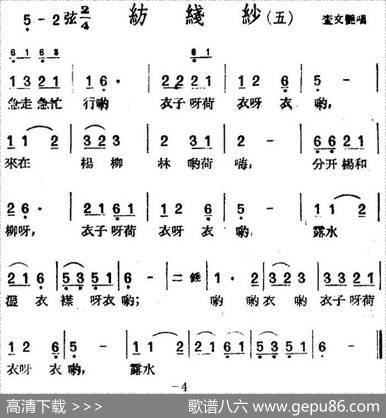 5 - 2 弦 2/4 紡綫紗（五） 查文艷唱
6 1 6 3 6 1
1 3 2 1 | 1 6 · | 2 2 2 1 | 1 2 6 | 5 -
急走 急忙 行喲 衣子 呀荷 衣呀 衣 喲，
1 1 2 | 3 2 3 | 2 3 1 | 2 - | 6 6 2 1
來在 楊 柳 林 喲荷 嗨， 分开 楊和
2 6 · | 2 1 6 1 | 1 2 6 | 5 - | 1 1 2
柳呀， 衣子 呀荷 衣呀 衣 喲， 露水
2 1 6 | 5 3 5 1 | 6 - | 二 錘 | 1 · 2 | 3 2 3 | 3 3 2 1
湿 衣 襟 呀衣 喲； 喲 喲衣 喲 衣子 呀荷
1 2 6 | 5 - | 1 1 2 | 2 1 6 | 5 3 5 1 | 6 -
衣呀 衣 喲， 露水
-4
高清下载 >>> 歌谱八六 www.gepu86.com